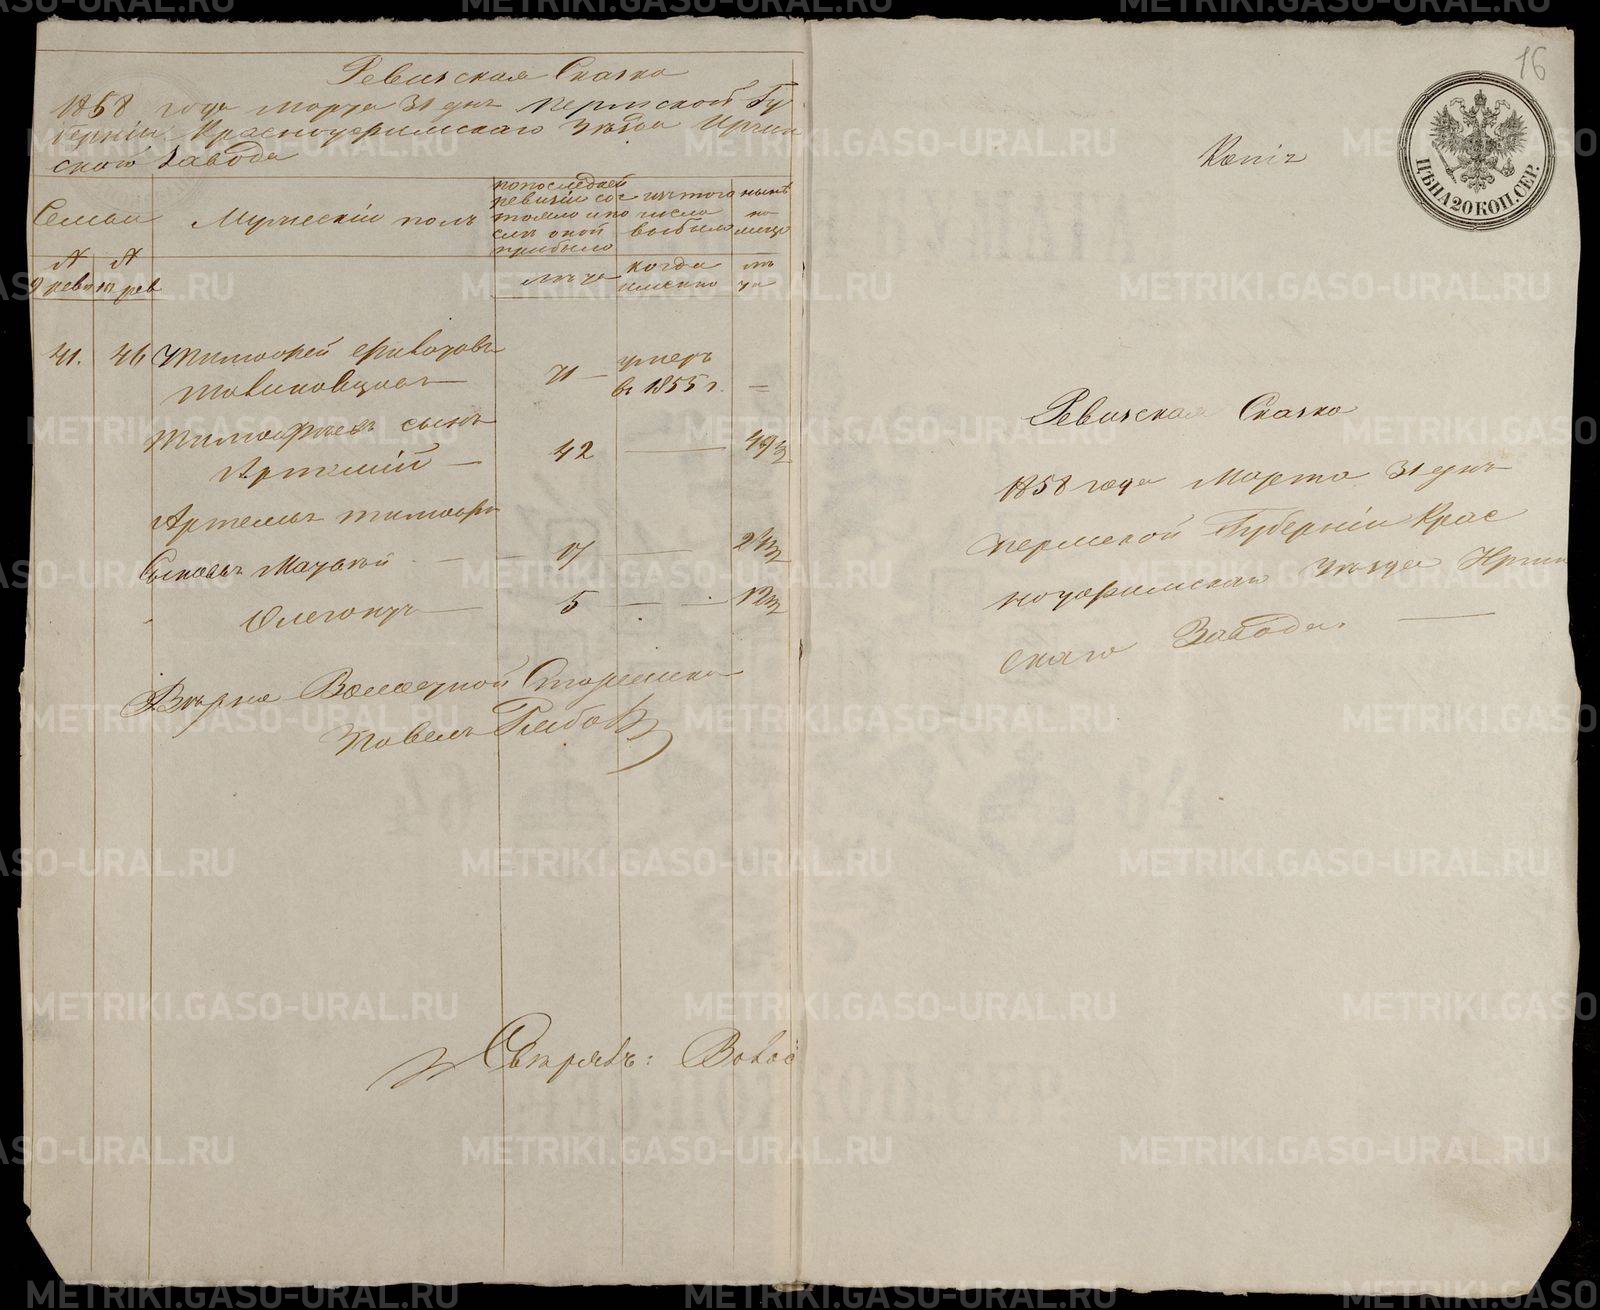 Ревизская Сказка
1858 года марта 31 дня Пермской Гу
берніи Красноуфимскаго Уѣзда Иргин
ской завода
Семьи
Мужескій полъ
попоследней
ревизіи сос
тояло и по
слѣ оной
прибыло
изъ того
числа
выбыло
нынѣ
на
лицо
№
9 реви
№
10 рев
лѣта
когда
именно
лѣ
та
41.
46
Тимофей
71 —
умеръ
въ 1855 г.
—
Тимофеевъ сынъ
Артемій —
42
49½
Артемья тимофе
Сыновья
17
24½
5
12½
Вѣрно Волостной Старшина
Павелъ Глебов
Свѣрялъ: Волос
16
Копія
ЦѢНА 20 КОП. СЕР.
Ревизская Сказка
1858 года Марта 31 дня
Пермской Губерніи Крас
ноуфимскаго Уѣзда Иргин
скаго Завода. —
METRIKI.GASO-URAL.RU